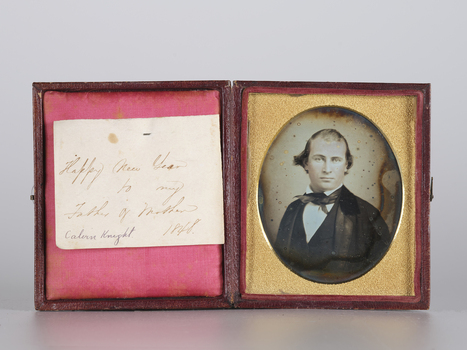 Happy New Year
to my
Father & Mother
1848.
Calvin Knight